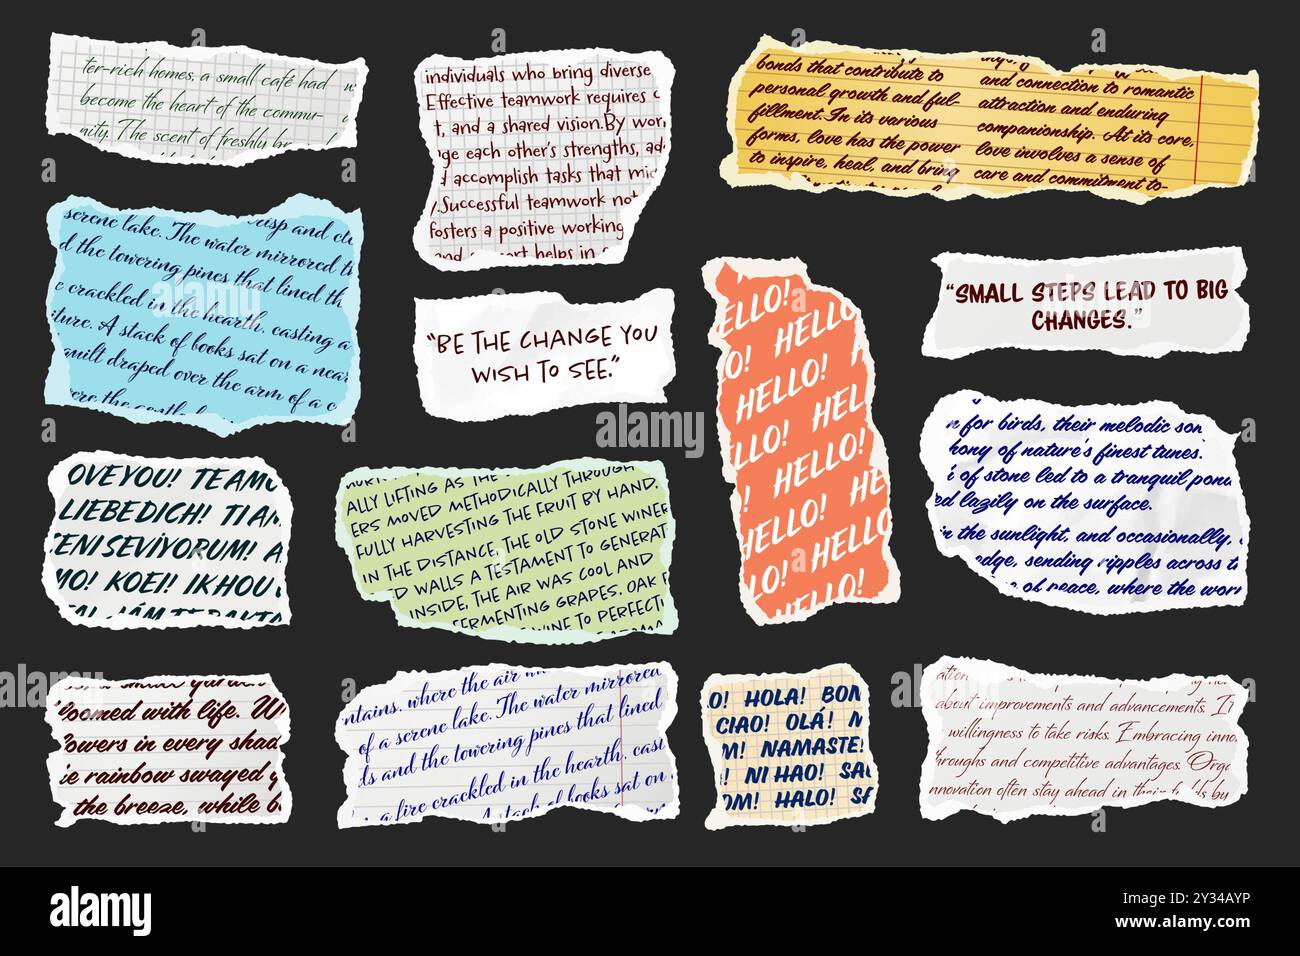 ter-rich homes, a small café had
become the heart of the commu-
nity. The scent of freshly br
individuals who bring diverse
Effective teamwork requires c
t, and a shared vision.By wor
ge each other's strengths, ad
accomplish tasks that mi
y.Successful teamwork not
fosters a positive working
and helps in
bonds that contribute to
personal growth and ful-
fillment.In its various
forms, love has the power
to inspire, heal, and bring
and connection to romantic
attraction and enduring
companionship. At its core,
love involves a sense of
care and commitment to-
serene lake. The water mirrored th
d the towering pines that lined th
e crackled in the hearth, casting a
iture. A stack of books sat on a near
quilt draped over the arm of a c
were the gentle
risp and cle
"BE THE CHANGE YOU
WISH TO SEE."
ELLO!
HELLO
O! HELLO!
HELLO! H
LLO! HELLO
O! HELLO!
HELLO! HEL
LLO! HELLO!
! HELLO! HE
HELLO! HELLO
LO! HELLO
HELLO!
"SMALL STEPS LEAD TO BIG
CHANGES."
OVEYOU! TEAMO
LIEBEDICH! TIAM
ENISEVİYORUM! A
MO! KOEI! IKHOU
ALLY LIFTING AS THE
ERS MOVED METHODICALLY THROUGH
FULLY HARVESTING THE FRUIT BY HAND.
IN THE DISTANCE, THE OLD STONE WINER
D WALLS A TESTAMENT TO GENERAT
INSIDE, THE AIR WAS COOL AND
FERMENTING GRAPES. OAK B
WINE TO PERFECTI
n for birds, their melodic son
hony of nature's finest tunes.
of stone led to a tranquil pond
ed lazily on the surface.
in the sunlight, and occasionally,
edge, sending ripples across t
of peace, where the wor
loomed with life. Wi
lowers in every shad
ie rainbow swayed g
the breeze, while b
ntains, where the air
of a serene lake. The water mirrored
ls and the towering pines that lined
fire crackled in the hearth, casti
A stack of books sat on
O! HOLA! BON
CIAO! OLÁ! N
M! NAMASTE!
! NI HAO! SAL
OM! HALO! SA
about improvements and advancements. It
willingness to take risks. Embracing inno
hroughs and competitive advantages. Orga
nnovation often stay ahead in their fields by
alamy
alamy
Image ID: 2Y34AYP
www.alamy.com